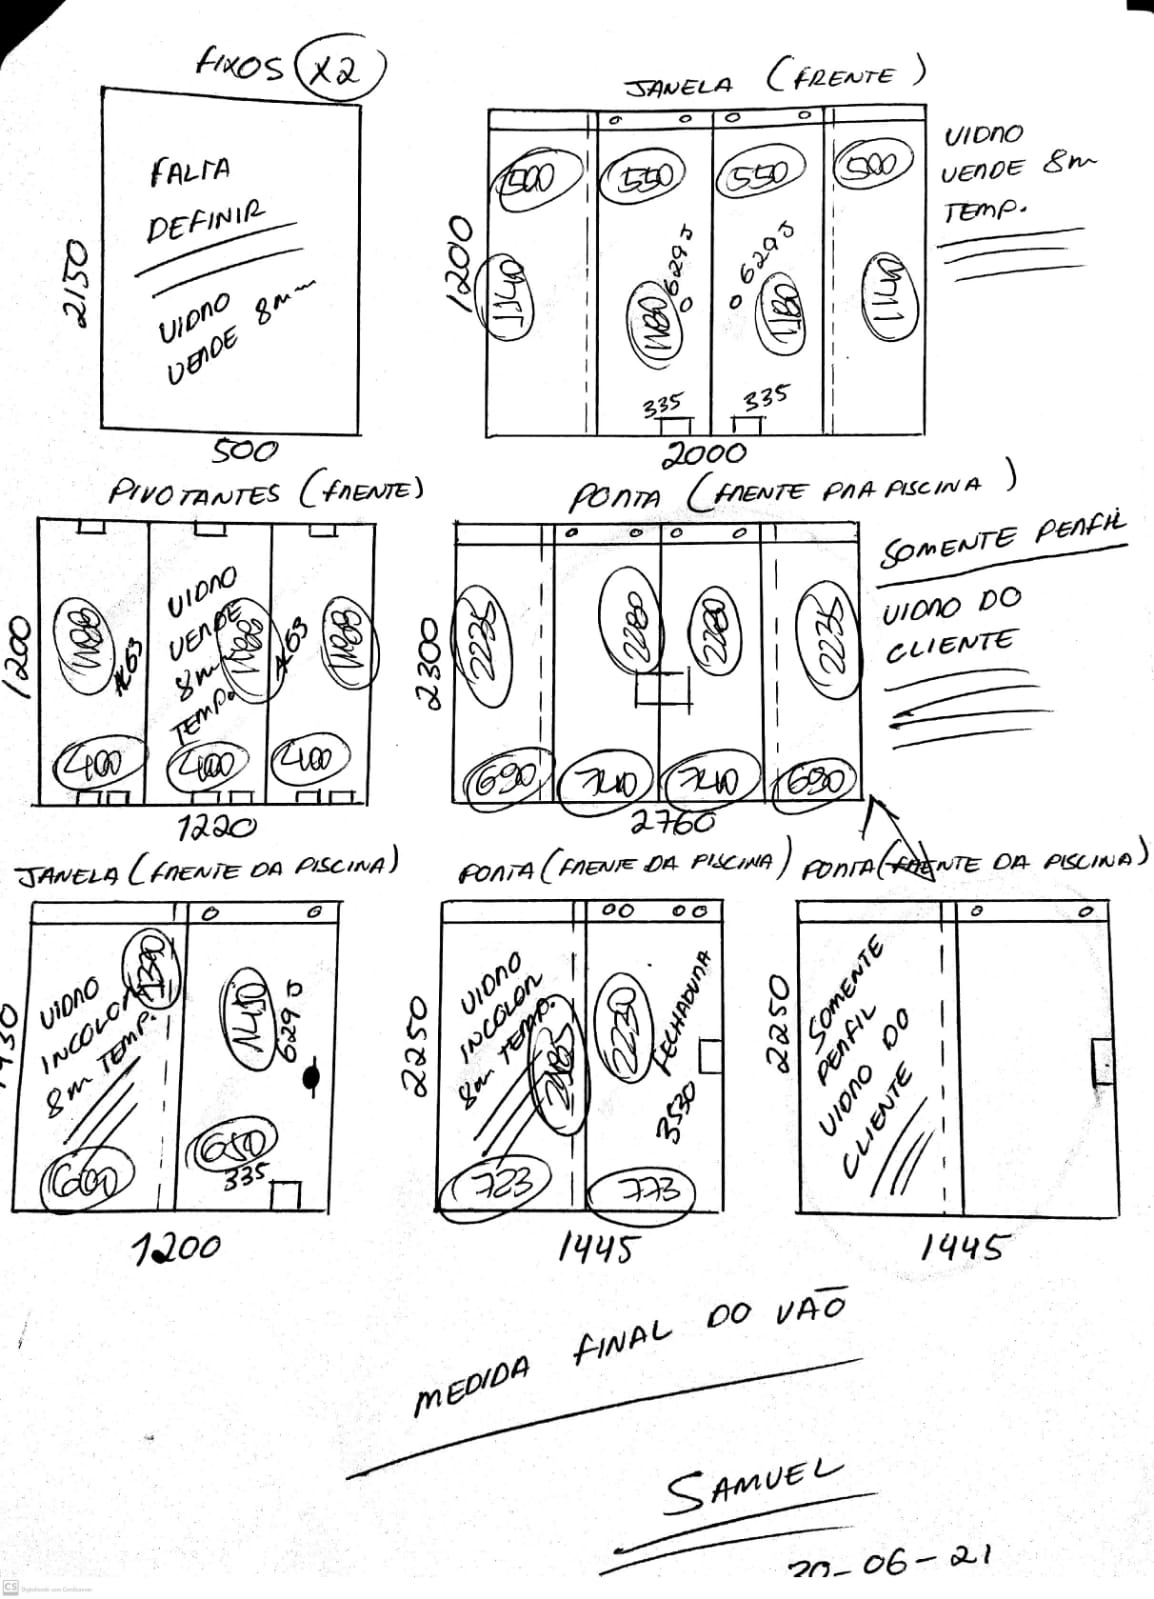 FIXOS X2
FALTA
DEFINIR
VIDRO
VERDE 8mm
2150
500
JANELA (FRENTE)
500 550 550 500
1200
1140 1180 629J 629J 1180 1140
335 335
2000
VIDRO
VERDE 8m
TEMP.
PIVOTANTES (FRENTE)
1200
VIDRO
VERDE
8mm
TEMP.
1188 1188 1188
400 400 400
1220
PORTA (FRENTE PRA PISCINA)
2300
2235 2280 2280 2235
690 740 740 690
2760
SOMENTE PERFIL
VIDRO DO
CLIENTE
JANELA (FRENTE DA PISCINA)
VIDRO
INCOLOR
8m TEMP.
1390
1430
629J
600
650
335
1200
PORTA (FRENTE DA PISCINA)
2250
VIDRO
INCOLOR
8m TEMP.
2185
2230
FECHADURA
3530
723 773
1445
PORTA (FRENTE DA PISCINA)
2250
SOMENTE
PERFIL
VIDRO DO
CLIENTE
1445
MEDIDA FINAL DO VÃO
SAMUEL
-06-21
CS Digitalizado com CamScanner